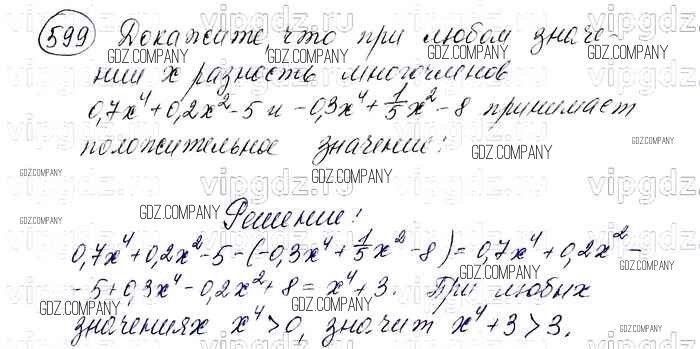 599 Докажите, что при любом значе-
нии x разность многочленов
0,7x⁴+0,2x²-5 и -0,3x⁴+1/5x²-8 принимает
положительное значение:
Решение:
0,7x⁴+0,2x²-5-(-0,3x⁴+1/5x²-8)=0,7x⁴+0,2x²-
-5+0,3x⁴-0,2x²+8=x⁴+3. При любых
значениях x⁴>0, значит x⁴+3>3.